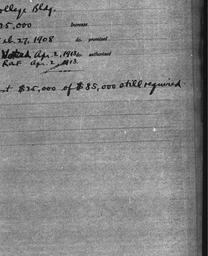 ollege Bldg.
25,000 Increase
eb. 27, 1908 do. promised
Voted Apr. 2, 1913 do. authorized
Rat Apr. 2, 1913.
st $25,000 of $85,000 still required.